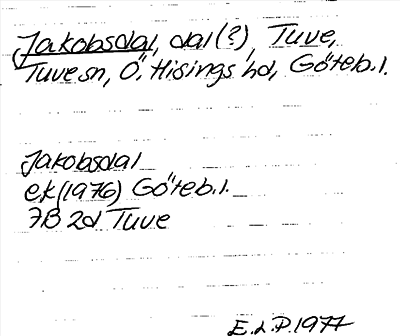 Jakobsdal, dal (?), Tuve,
Tuve sn, Ö. Hisings hd, Göteb. l.
Jakobsdal
ek (1976) Göteb. l.
7B 2d Tuve
E.L.P. 1977